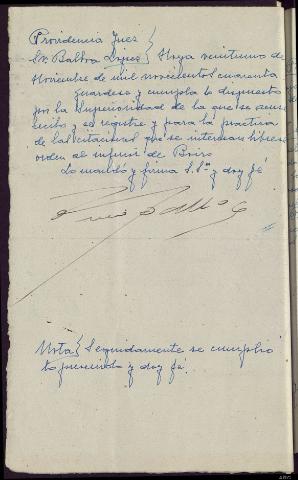 Providencia Juez
Sr Balboa López } Moya veintiuno de
Noviembre de mil novecientos cuarenta
Guardese y cumplase lo dispuesto
por la Superioridad de la que se acuse
recibo y se registre y para la practica
de las citaciones que se interesan librese
orden al inferior de
Lo mandó y firma S.Sª y doy fé
Nota } Seguidamente se cumplió
lo y doy fé.